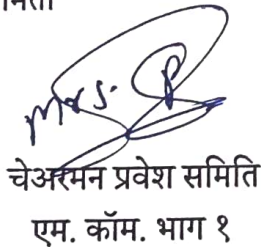 Mrs.
चेअरमन प्रवेश समिती
एम. कॉम. भाग १